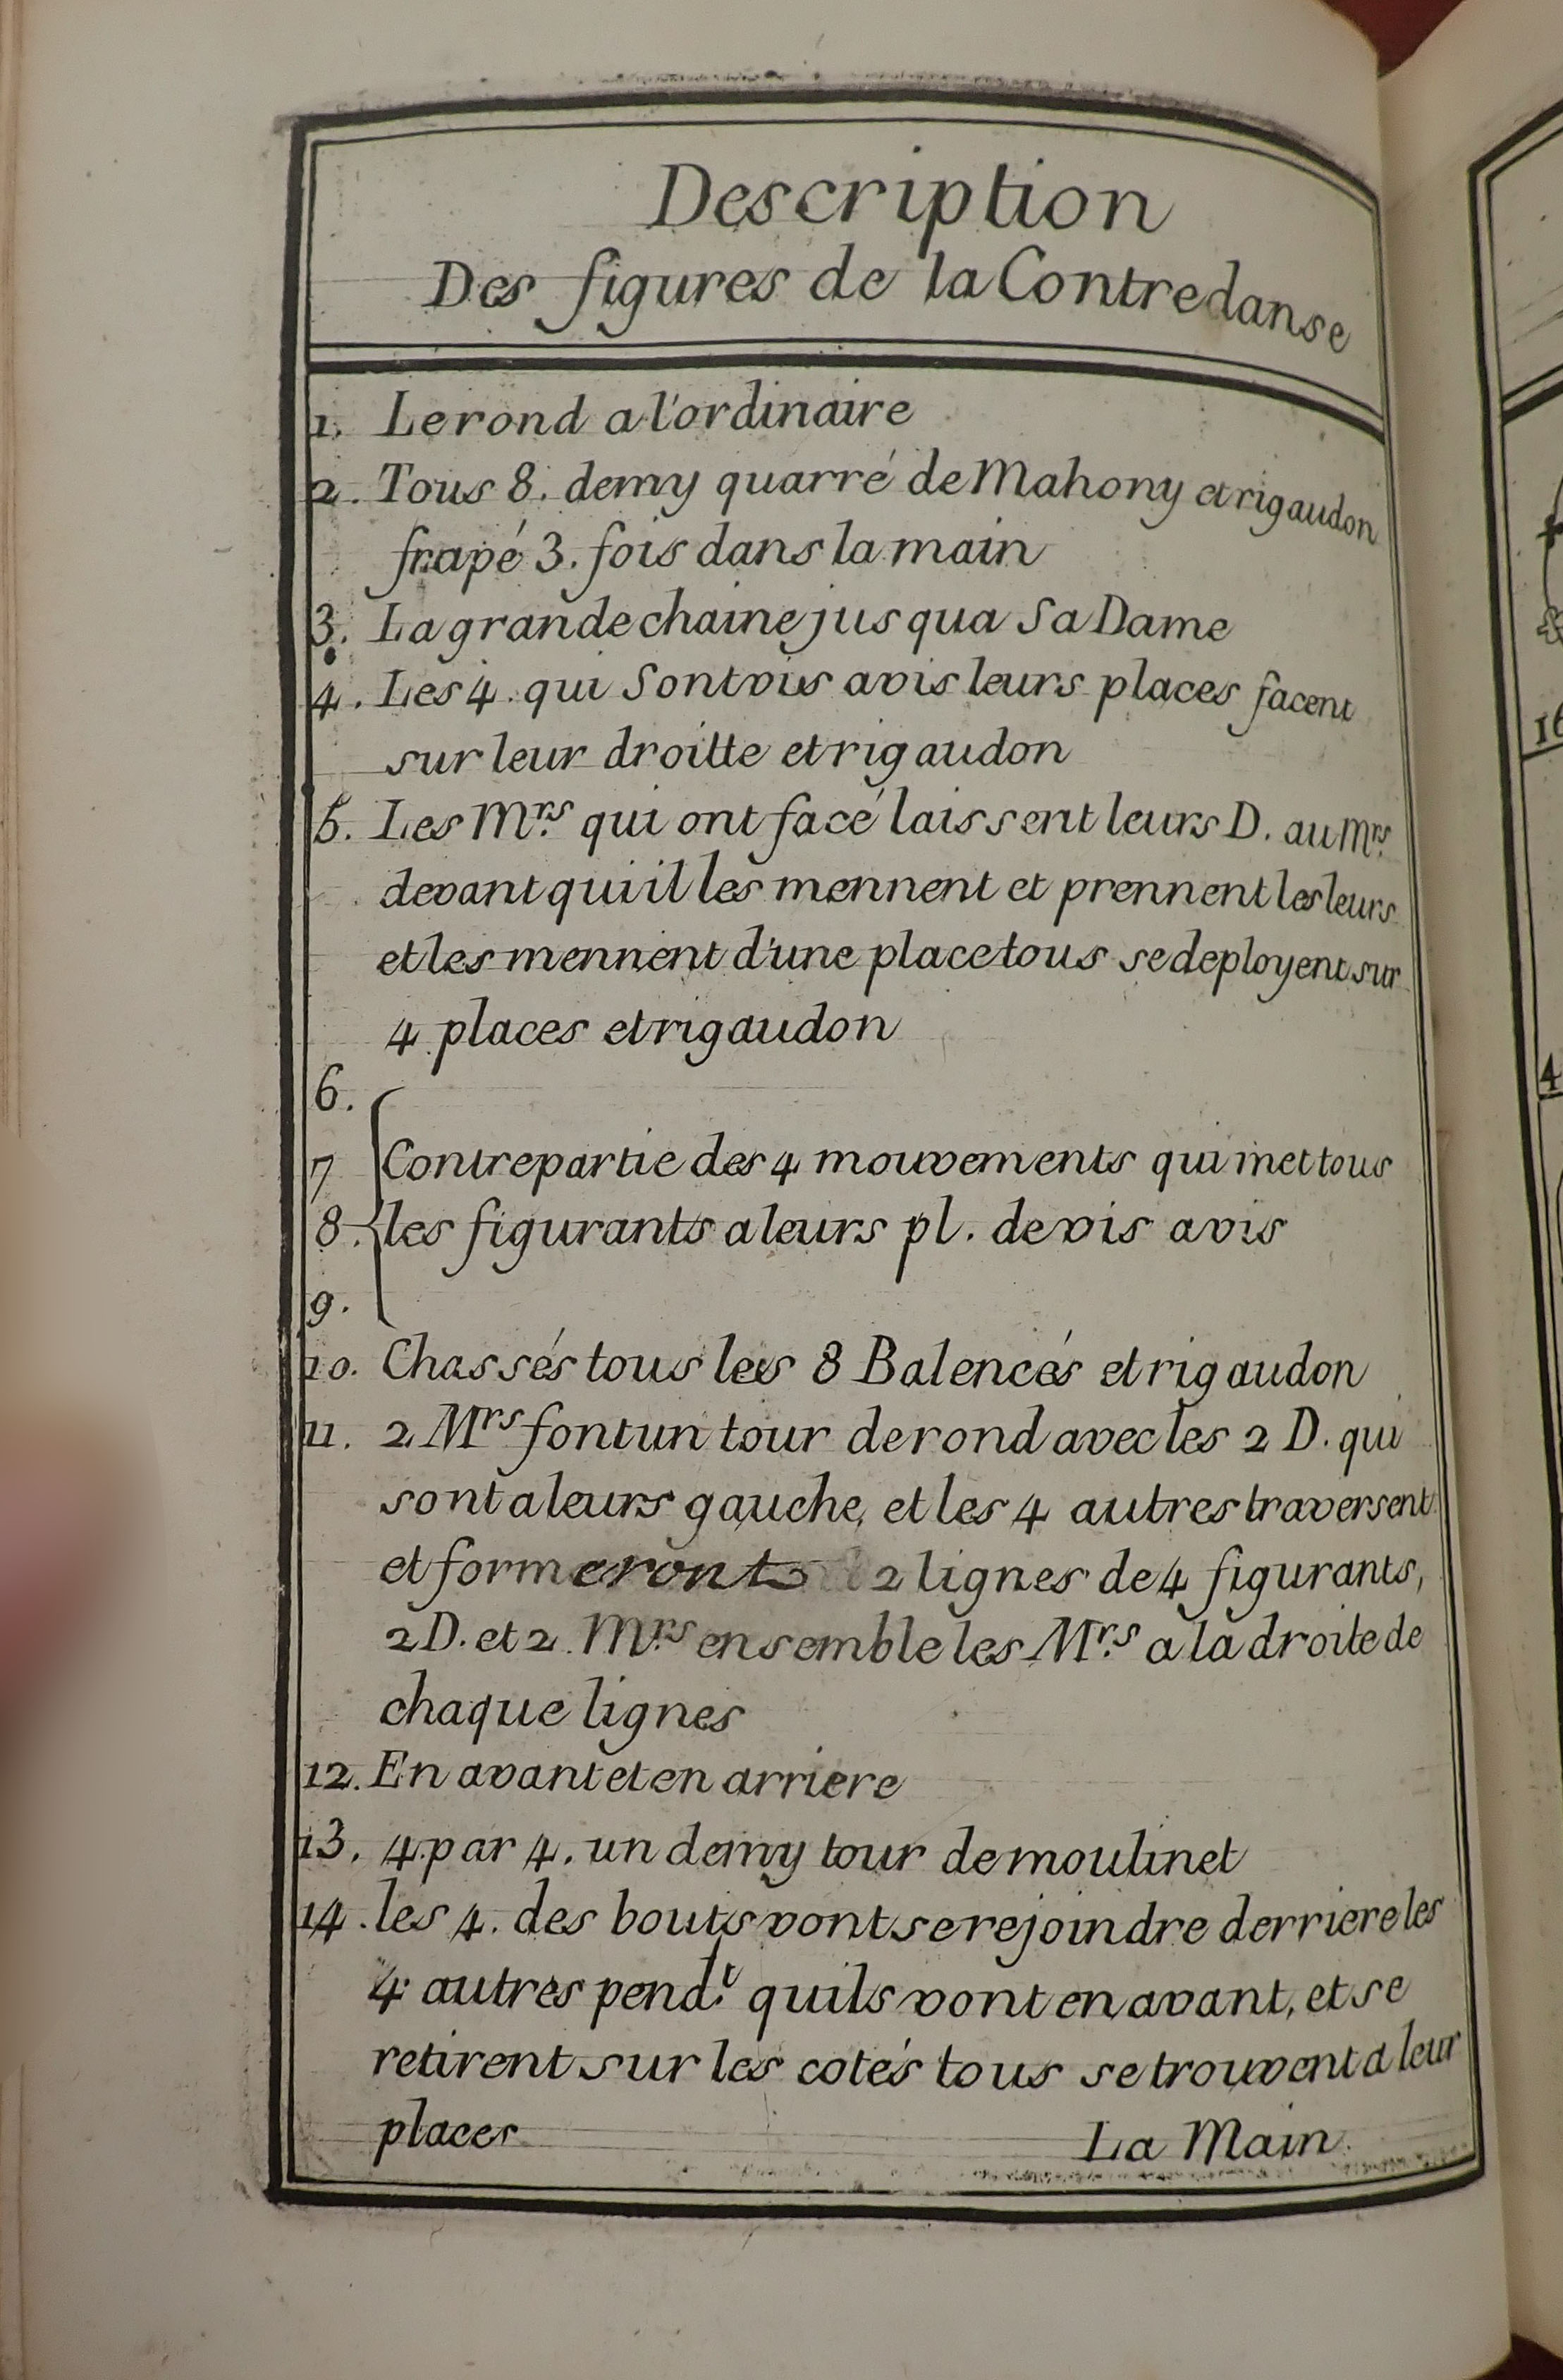 Description
Des figures de la Contredanse
1. Le rond a l'ordinaire
2. Tous 8. demy quarré de Mahony et rigaudon
frapé 3. fois dans la main
3. La grande chaine jus qua Sa Dame
4. Les 4. qui Sont vis avis leurs places facent
sur leur droitte et rigaudon
5. Les Mrs. qui ont facé laissent leurs D. au Mrs.
devant qui il les mennent et prennent les leurs
et les mennent d'une place tous se deployent sur
4 places et rigaudon
6.
7 Contrepartie des 4 mouvements qui met tous
8. les figurants a leurs pl. de vis avis
9.
10. Chassés tous les 8 Balencés et rigaudon
11. 2 Mrs font un tour de rond avec les 2 D. qui
sont a leurs gauche, et les 4 autres traversent
et formeront 2 lignes de 4 figurants,
2 D. et 2. Mrs. ensemble les Mrs. a la droite de
chaque lignes
12. En avant et en arriere
13. 4 par 4. un demy tour de moulinet
14. les 4. des bouts vont se rejoindre derriere les
4 autres pendt. quils vont en avant, et se
retirent sur les cotés tous se trouvent a leur
places
La Main.
16
4